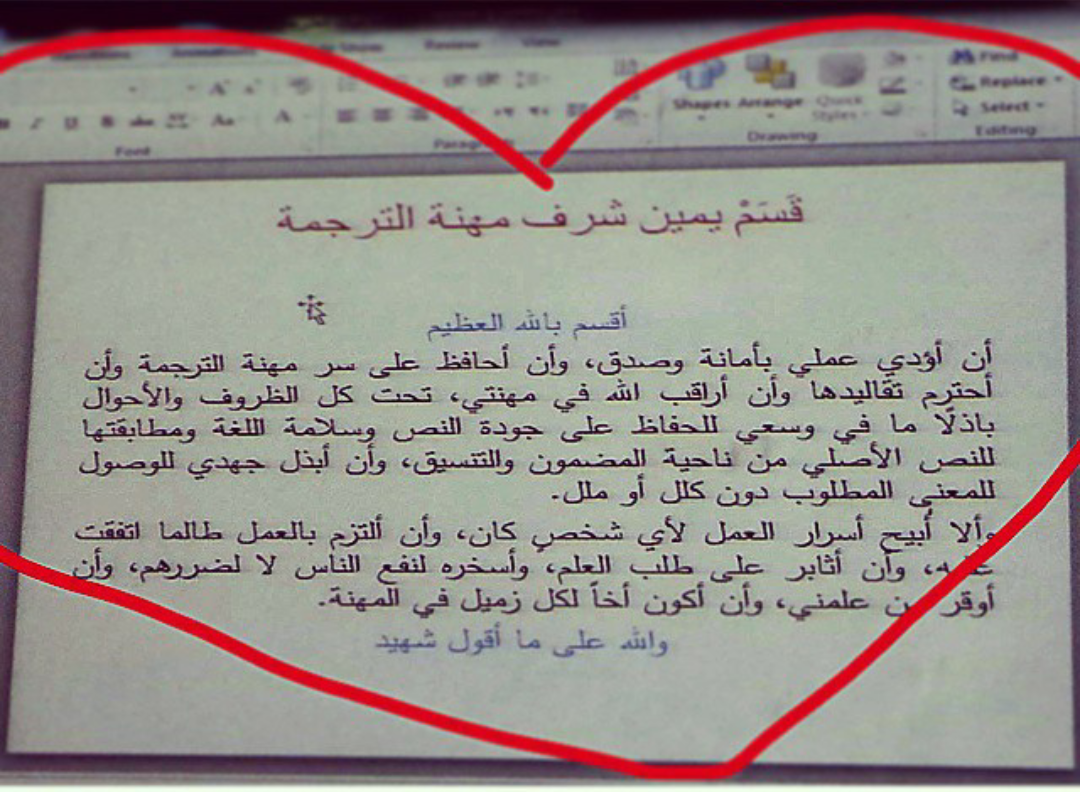 Review
View
Shapes Arrange Quick Styles
Find
Replace
Select
Font
Drawing
Editing
قَسَمْ يمين شرف مهنة الترجمة
أقسم بالله العظيم
أن أؤدي عملي بأمانة وصدق، وأن أحافظ على سر مهنة الترجمة وأن
أحترم تقاليدها وأن أراقب الله في مهنتي، تحت كل الظروف والأحوال
باذلًا ما في وسعي للحفاظ على جودة النص وسلامة اللغة ومطابقتها
للنص الأصلي من ناحية المضمون والتنسيق، وأن أبذل جهدي للوصول
للمعنى المطلوب دون كلل أو ملل.
وألا أبيح أسرار العمل لأي شخصٍ كان، وأن ألتزم بالعمل طالما اتفقت
وأن أثابر على طلب العلم، وأسخره لنفع الناس لا لضررهم، وأن
أوقر علمني، وأن أكون أخاً لكل زميل في المهنة.
والله على ما أقول شهيد